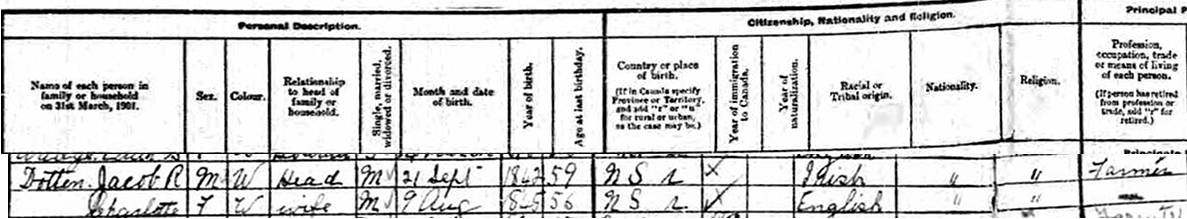 Personal Description.
Citizenship, Nationality and Religion.
Principal P
Name of each person in family or household on 31st March, 1901.
Sex.
Colour.
Relationship to head of family or household.
Single, married, widowed or divorced.
Month and date of birth.
Year of birth.
Age at last birthday.
Country or place of birth.
(If in Canada specify Province or Territory, and add "r" or "u" for rural or urban, as the case may be.)
Year of immigration to Canada.
Year of naturalization.
Racial or Tribal origin.
Nationality.
Religion.
Profession, occupation, trade or means of living of each person.
(If person has retired from profession or trade, add "r" for retired.)
Dotten Jacob R M W Head M 21 Sept 1842 59 N S r X Irish " " Farmer
Charlotte F W wife M 9 Aug 1845 56 N S r X English " "